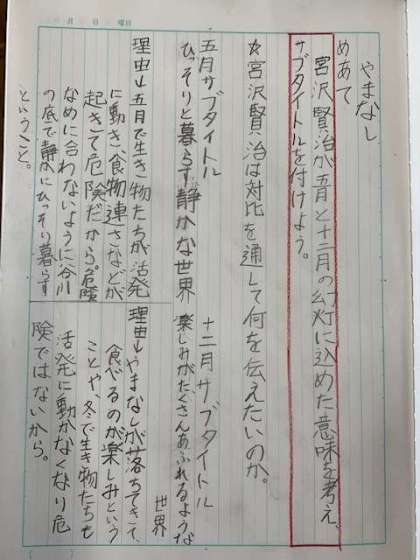 月 日 曜日
やまなし
めあて
宮沢賢治が五月と十二月の幻灯に込めた意味を考え、
サブタイトルを付けよう。
☆宮沢賢治は対比を通して何を伝えたいのか。
五月サブタイトル
ひっそりと暮らす静かな世界
理由↓五月で生き物たちが活発
に動き、食物連さなどが
起きて危険だから。危険
なめに合わないように谷川
の底で静かにひっそり暮らす
ということ。
十二月サブタイトル
楽しみがたくさんあふれるような
世界
理由↓やまなしが落ちてきて、
食べるのが楽しみという
ことや、冬で生き物たちも
活発に動かなくなり危
険ではないから。